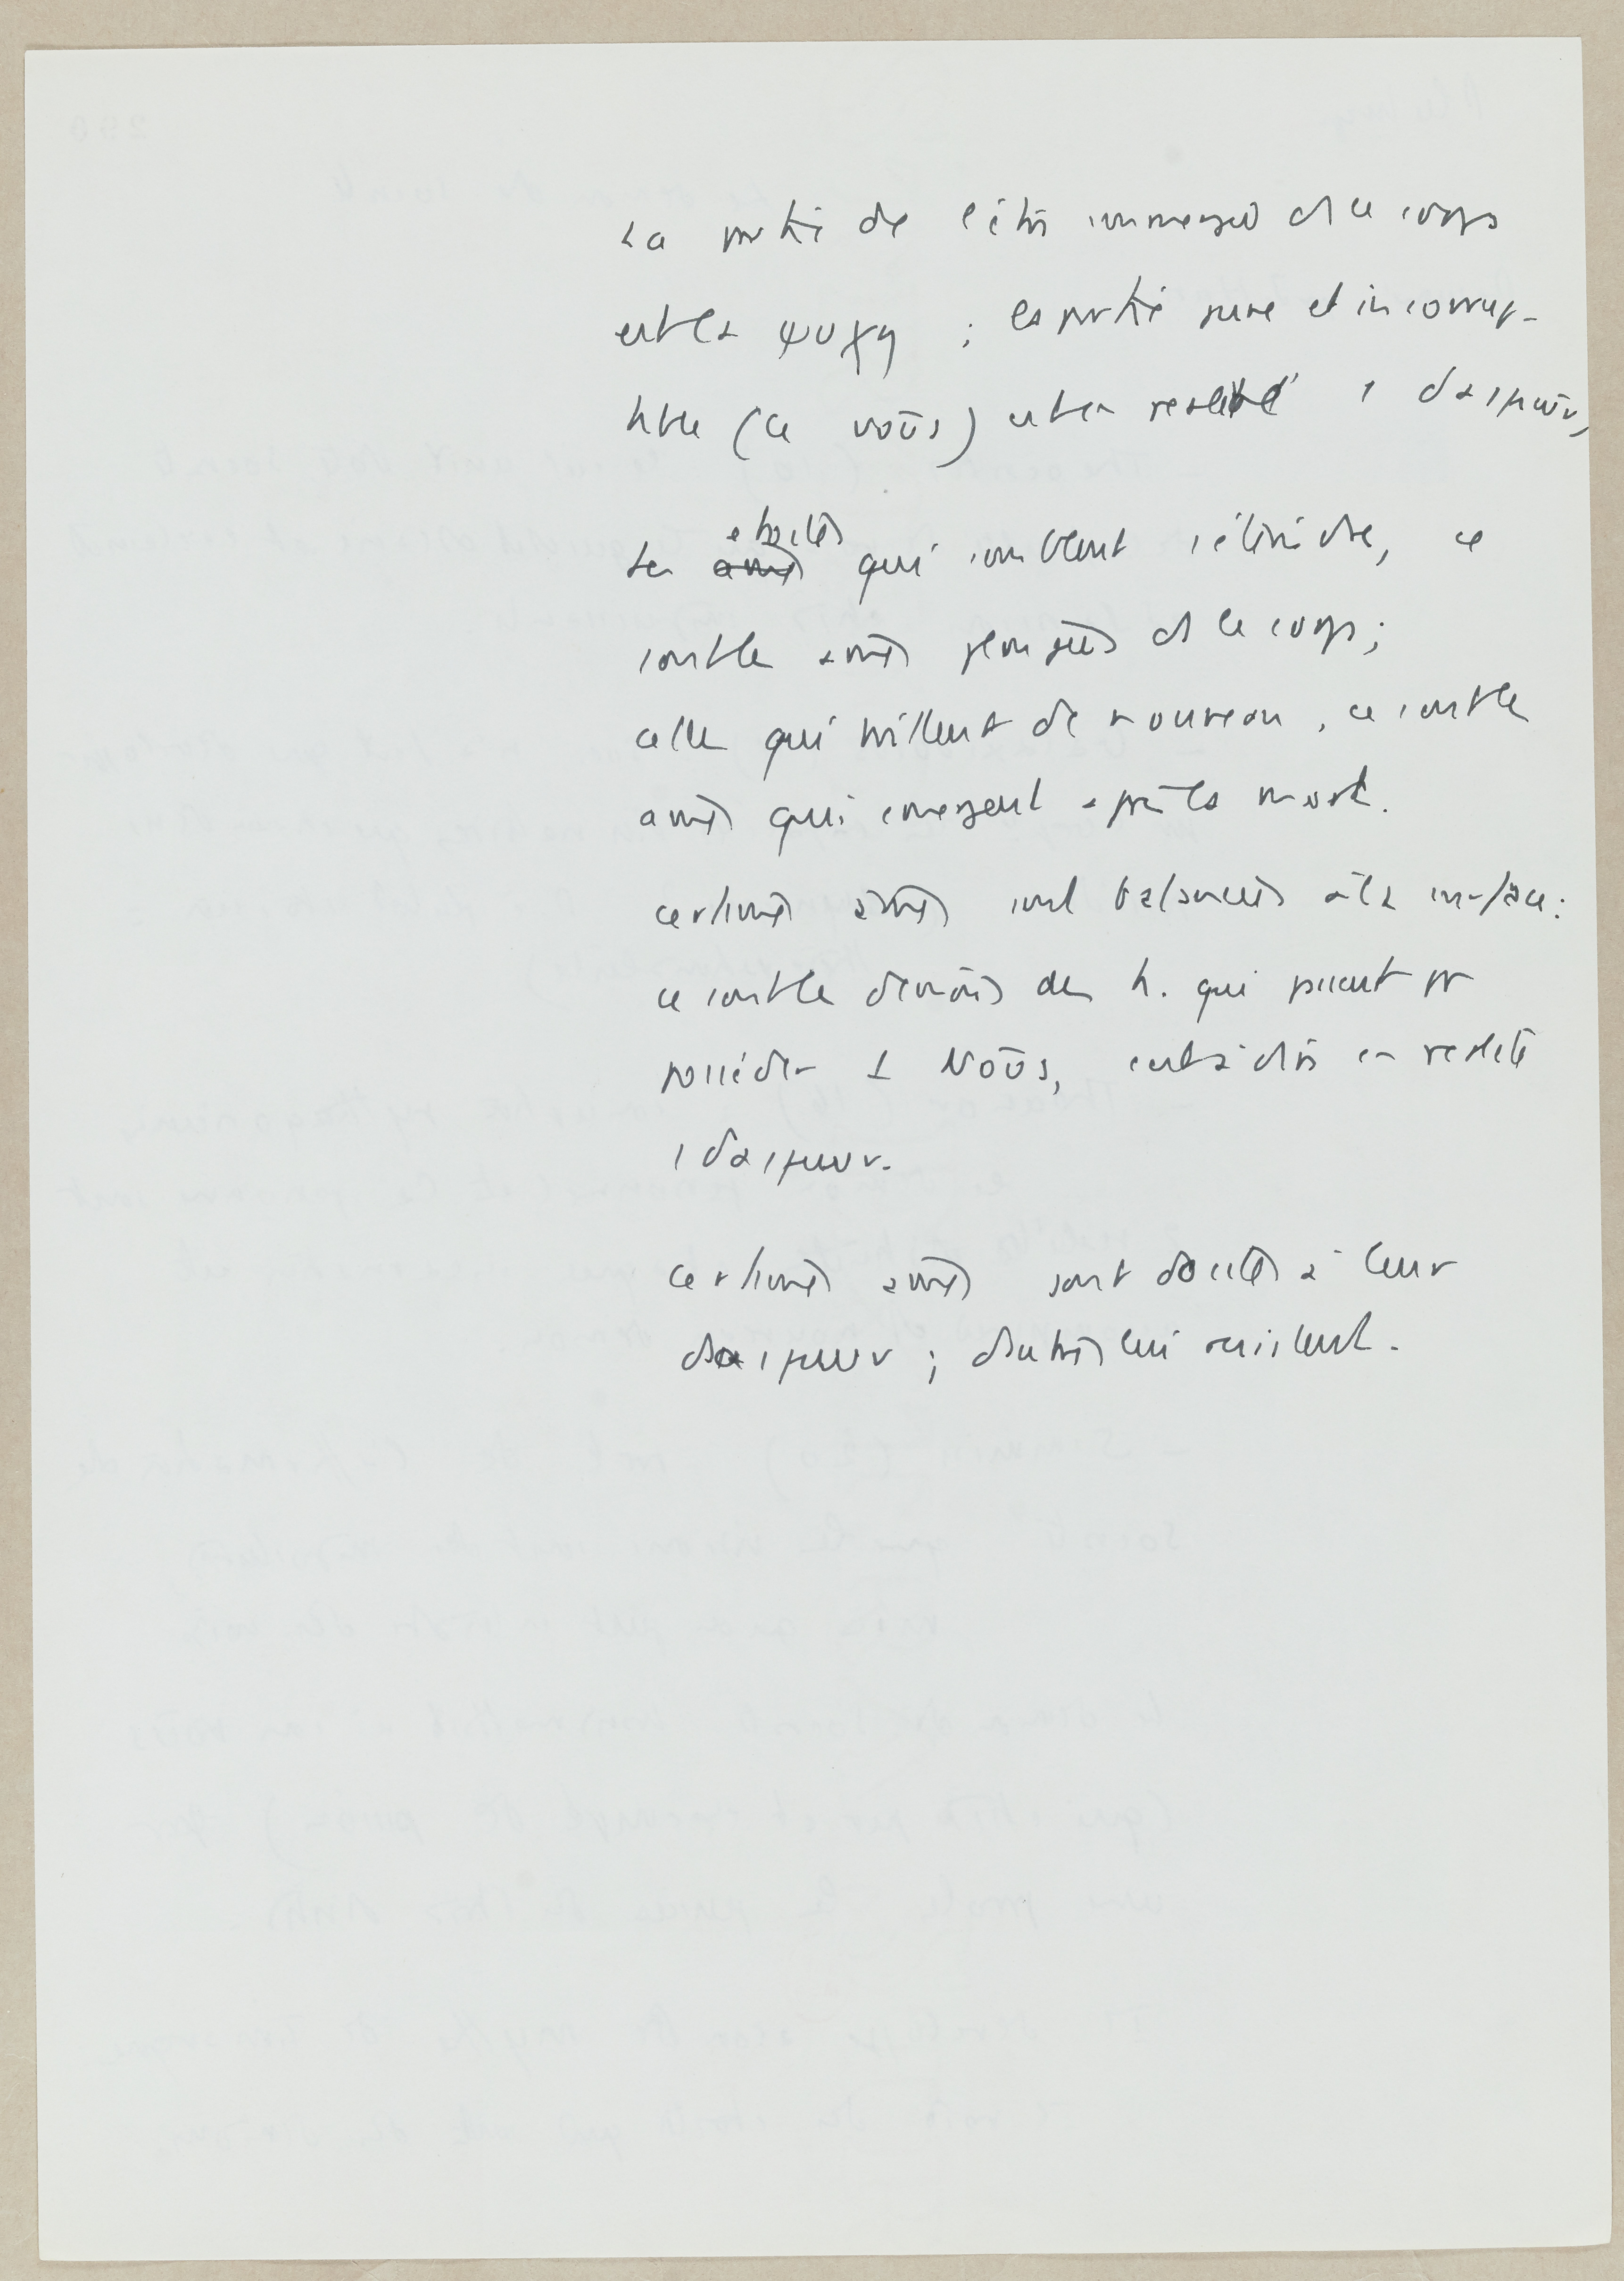 La partie de l'être immergée ds le corps
est la ψυχη ; la partie pure et incorrup-
tible (le νοῦς) est en realité 1 δαιμων,
Les etoiles qui semblent s'éteindre, ce
sont les ames plongées ds le corps;
celles qui brillent de nouveau, ce sont les
ames qui emergent après la mort.
certaines ames sont balancées à la surface :
ce sont les demons des h. qui passent pr
posséder 1 Noῦs, c'est à dire en realité
1 δαιμων.
certaines ames sont dociles à leur
δαιμων ; d'autres lui resistent.